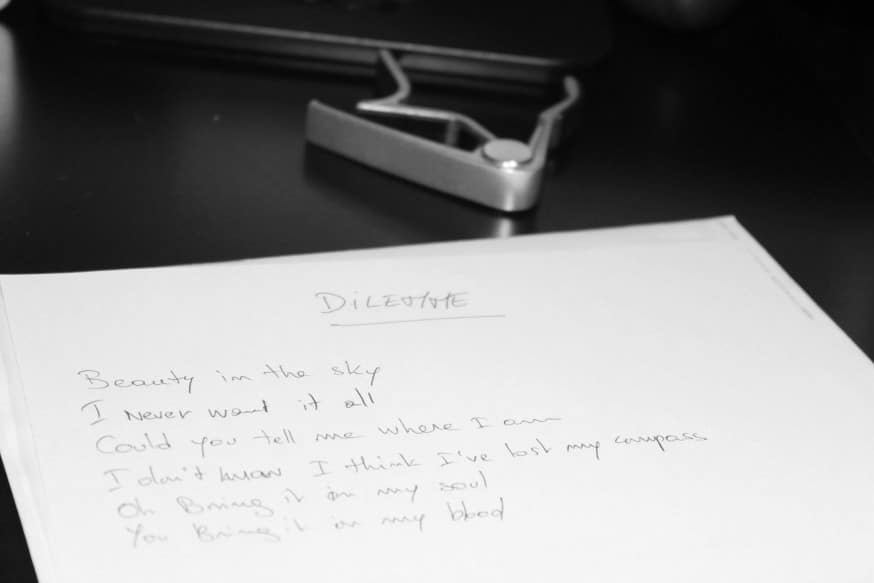 DiLEMME
Beauty in the sky
I Never want it all
Could you tell me where I am
I don't know I think I've lost my compass
Oh Bring it in my soul
You Bring it in my blood